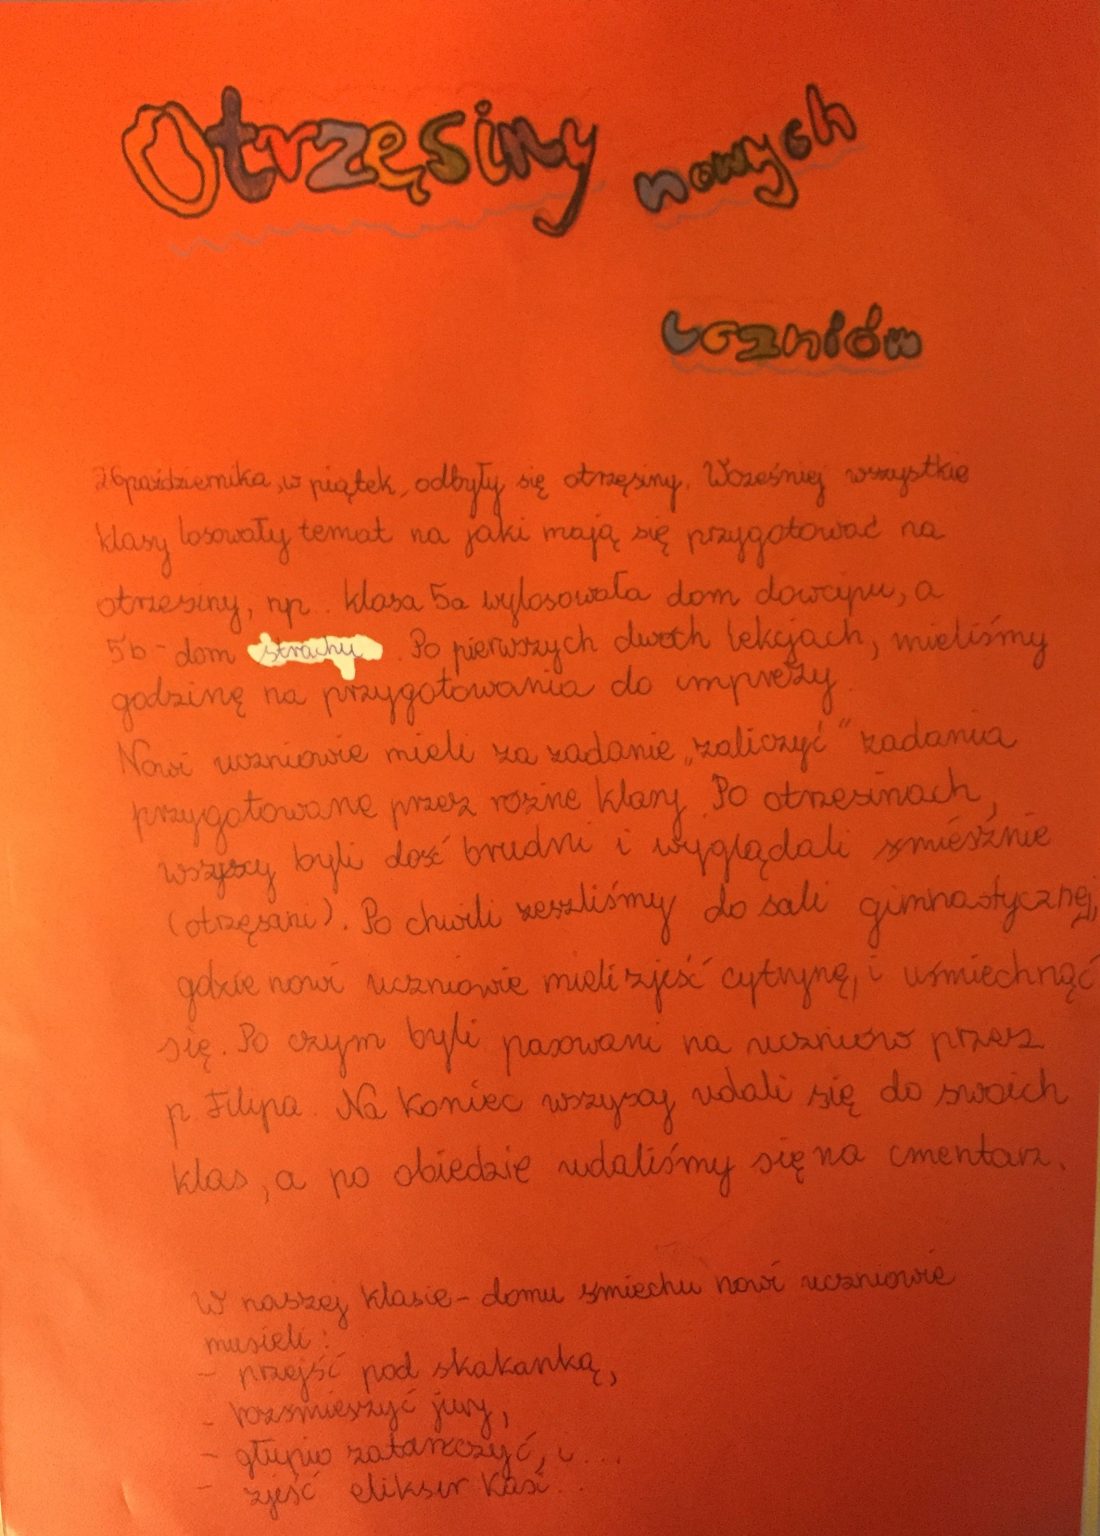 Otrzęsiny nowych
uczniów
26 października, w piątek, odbyły się otrzęsiny. Wcześniej wszystkie
klasy losowały temat na jaki mają się przygotować na
otrzęsiny, np.. klasa 5a wylosowała dom dowcipu, a
5b - dom strachu. Po pierwszych dwóch lekcjach, mieliśmy
godzinę na przygotowania do imprezy.
Nowi uczniowie mieli za zadanie „zaliczyć" zadania
przygotowane przez różne klasy. Po otrzęsinach,
wszyscy byli dość brudni i wyglądali śmiesznie
(otrzęsani). Po chwili zeszliśmy do sali gimnastycznej,
gdzie nowi uczniowie mieli zjeść cytrynę, i uśmiechnąć
się. Po czym byli pasowani na uczniów przez
p. Filipa. Na koniec wszyscy udali się do swoich
klas, a po obiedzie udaliśmy się na cmentarz.
W naszej klasie - domu śmiechu nowi uczniowie
musieli:
- przejść pod skakanką,
- rozśmieszyć jury,
- głupio zatańczyć, i...
- zjeść eliksir Kasi...